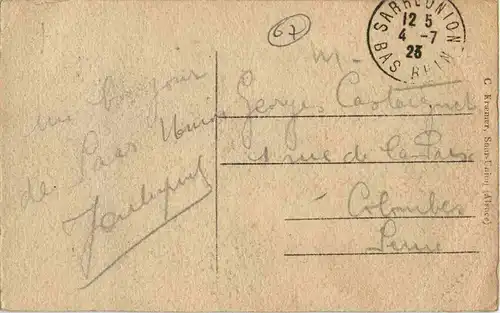 67
SARRE-UNION
12 5
4 -7
23
BAS-RHIN
un bonjour
de Saar Union
M.
Georges Castaignet
1 rue de la Paix
Colombes
Seine
C. Kramer, Saar-Union (Alsace)